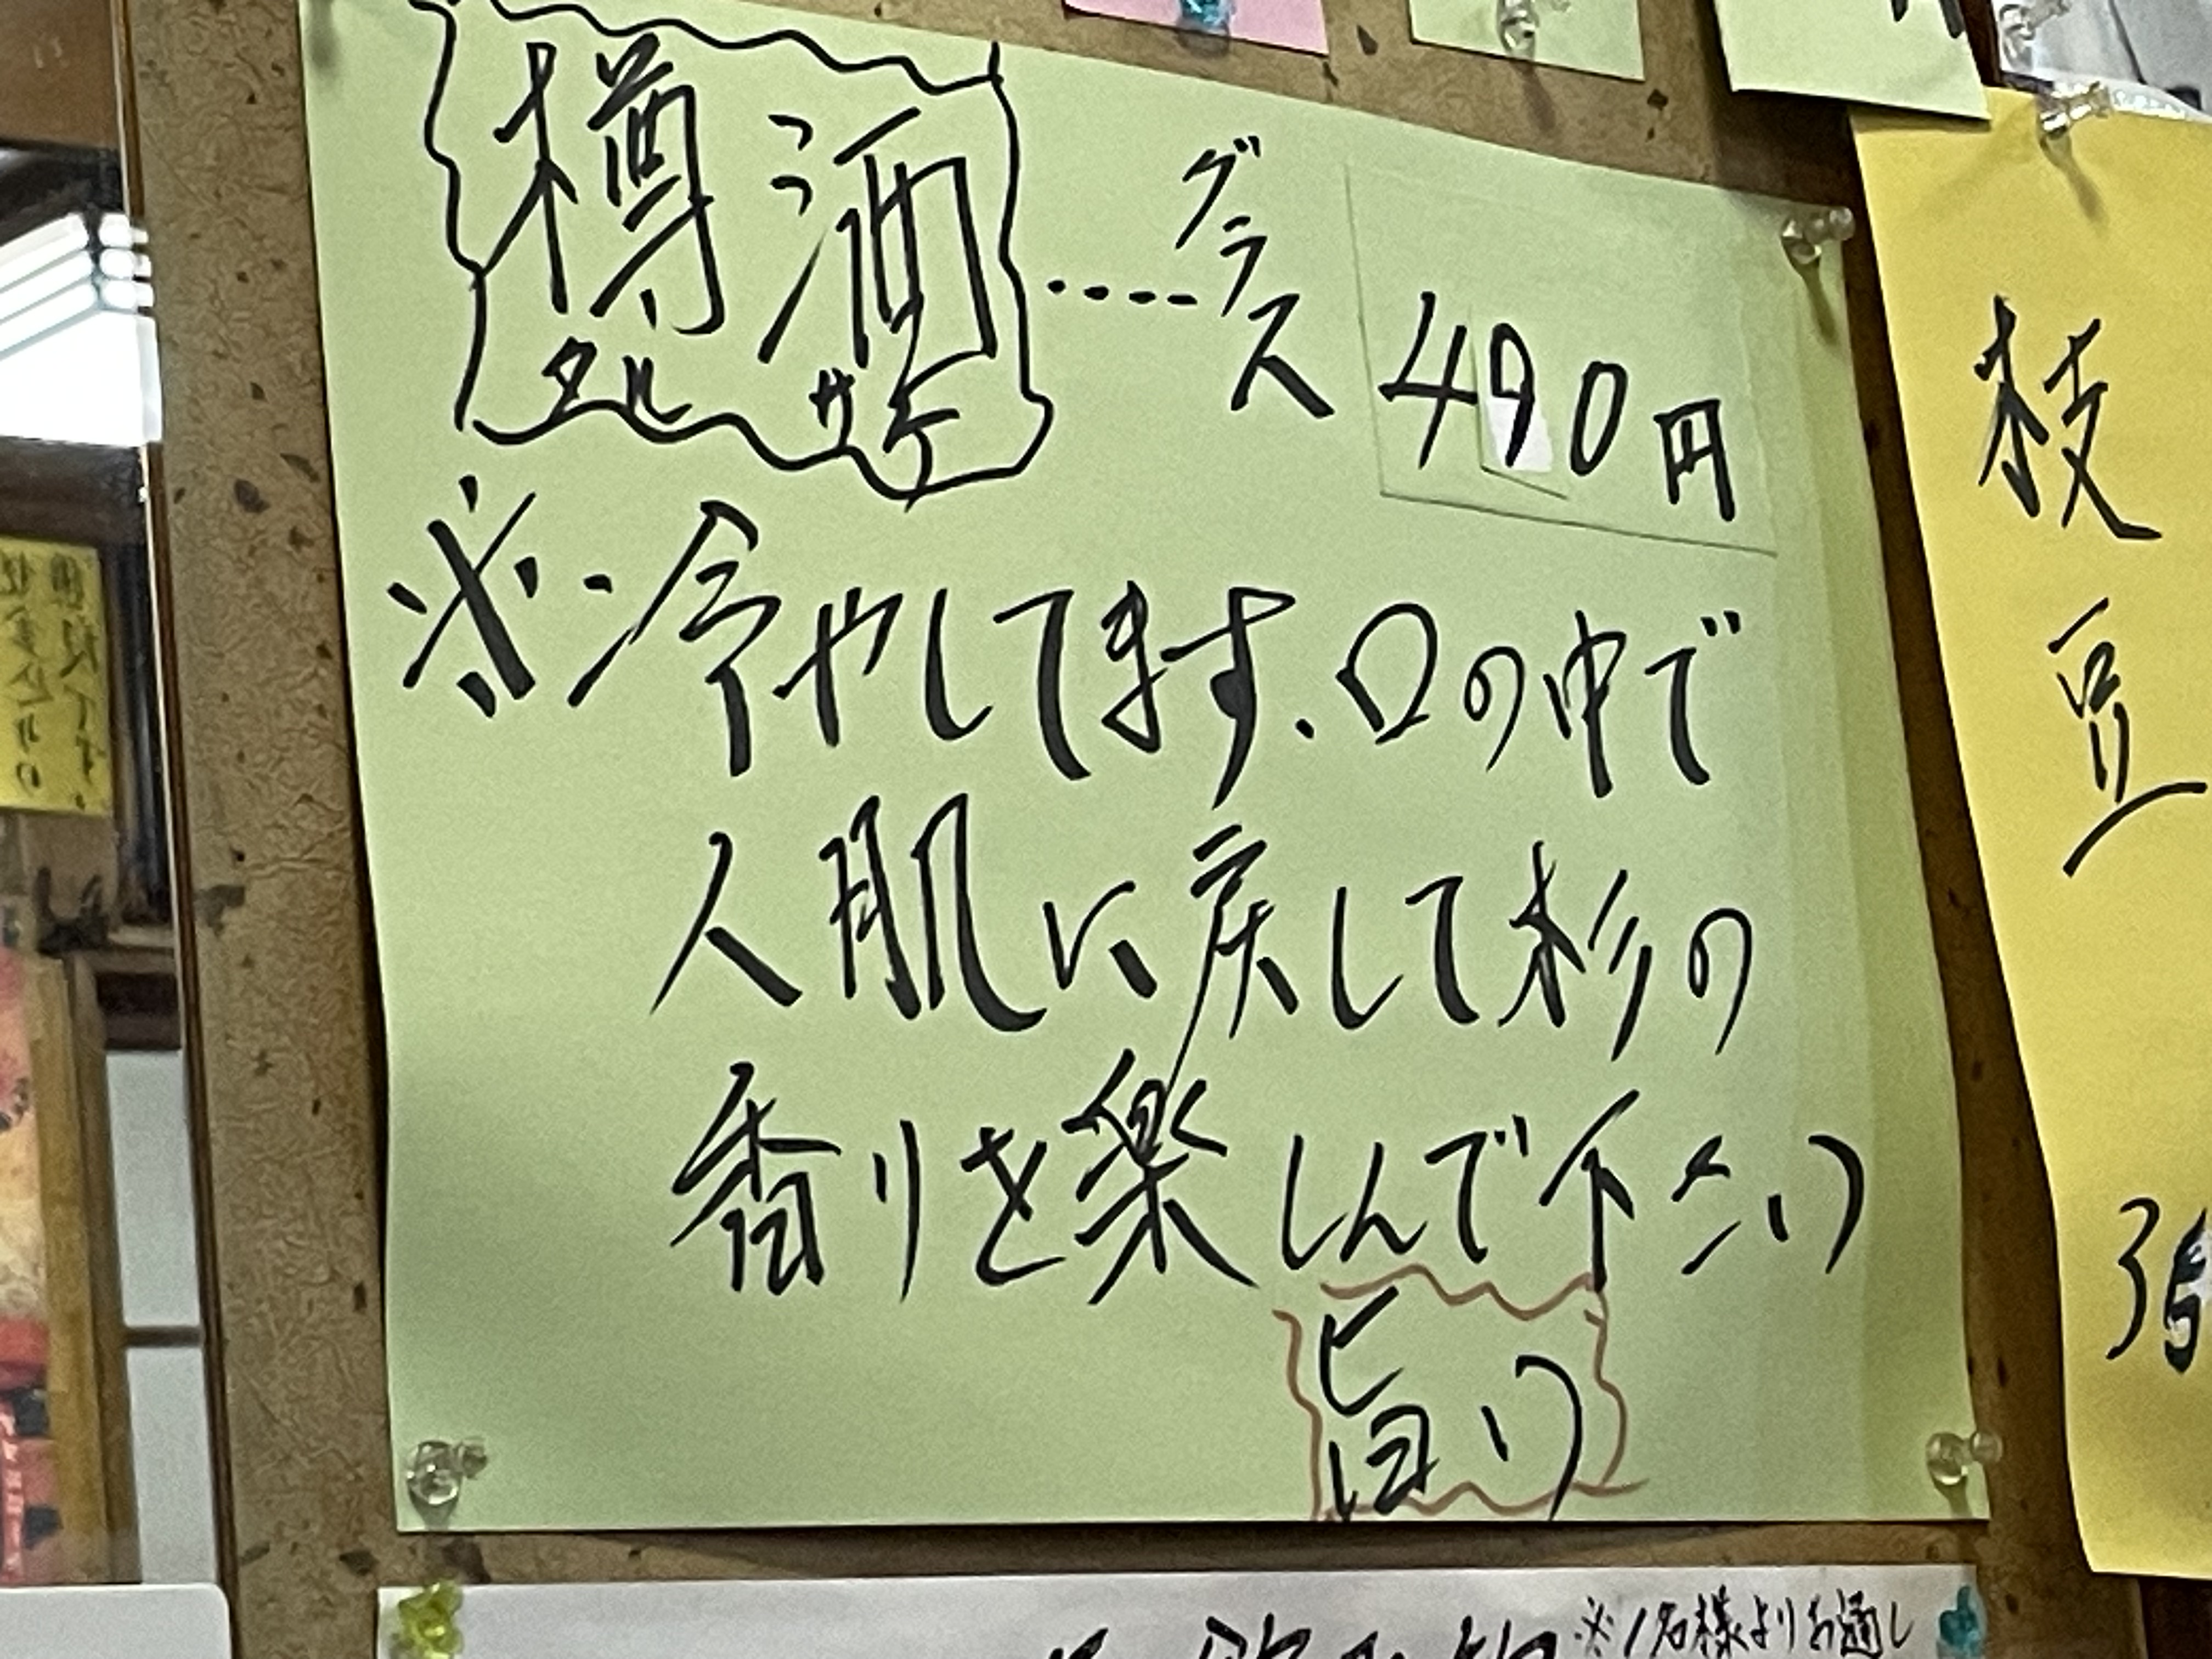 樽酒‥‥グラス490円
タル サケ
※冷やしてます、口の中で
人肌に戻して杉の
香りを楽しんで下さい
旨い
枝豆
※1名様よりお通し